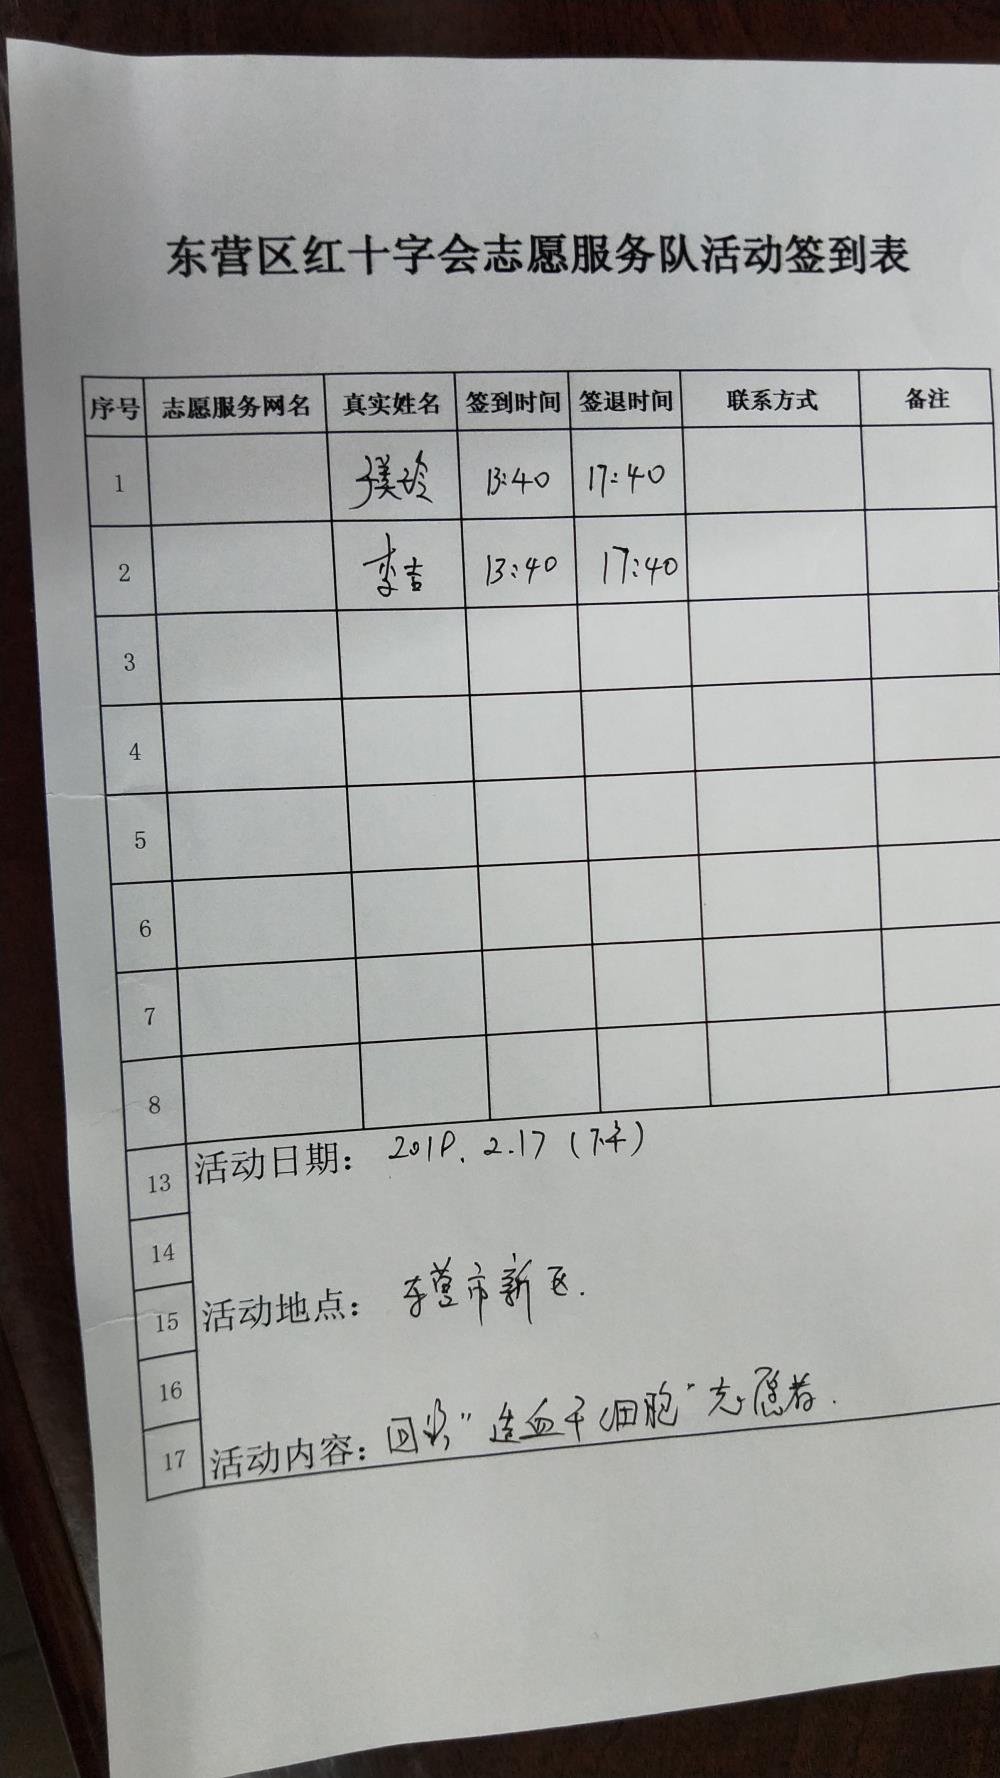 东营区红十字会志愿服务队活动签到表
序号 志愿服务网名 真实姓名 签到时间 签退时间 联系方式 备注
1 美玲 13:40 17:40
2 李吉 13:40 17:40
3
4
5
6
7
8
13 活动日期: 2.17 (下午)
14
15 活动地点: 东营市新区.
16
17 活动内容: 回访"造血干细胞"志愿者.